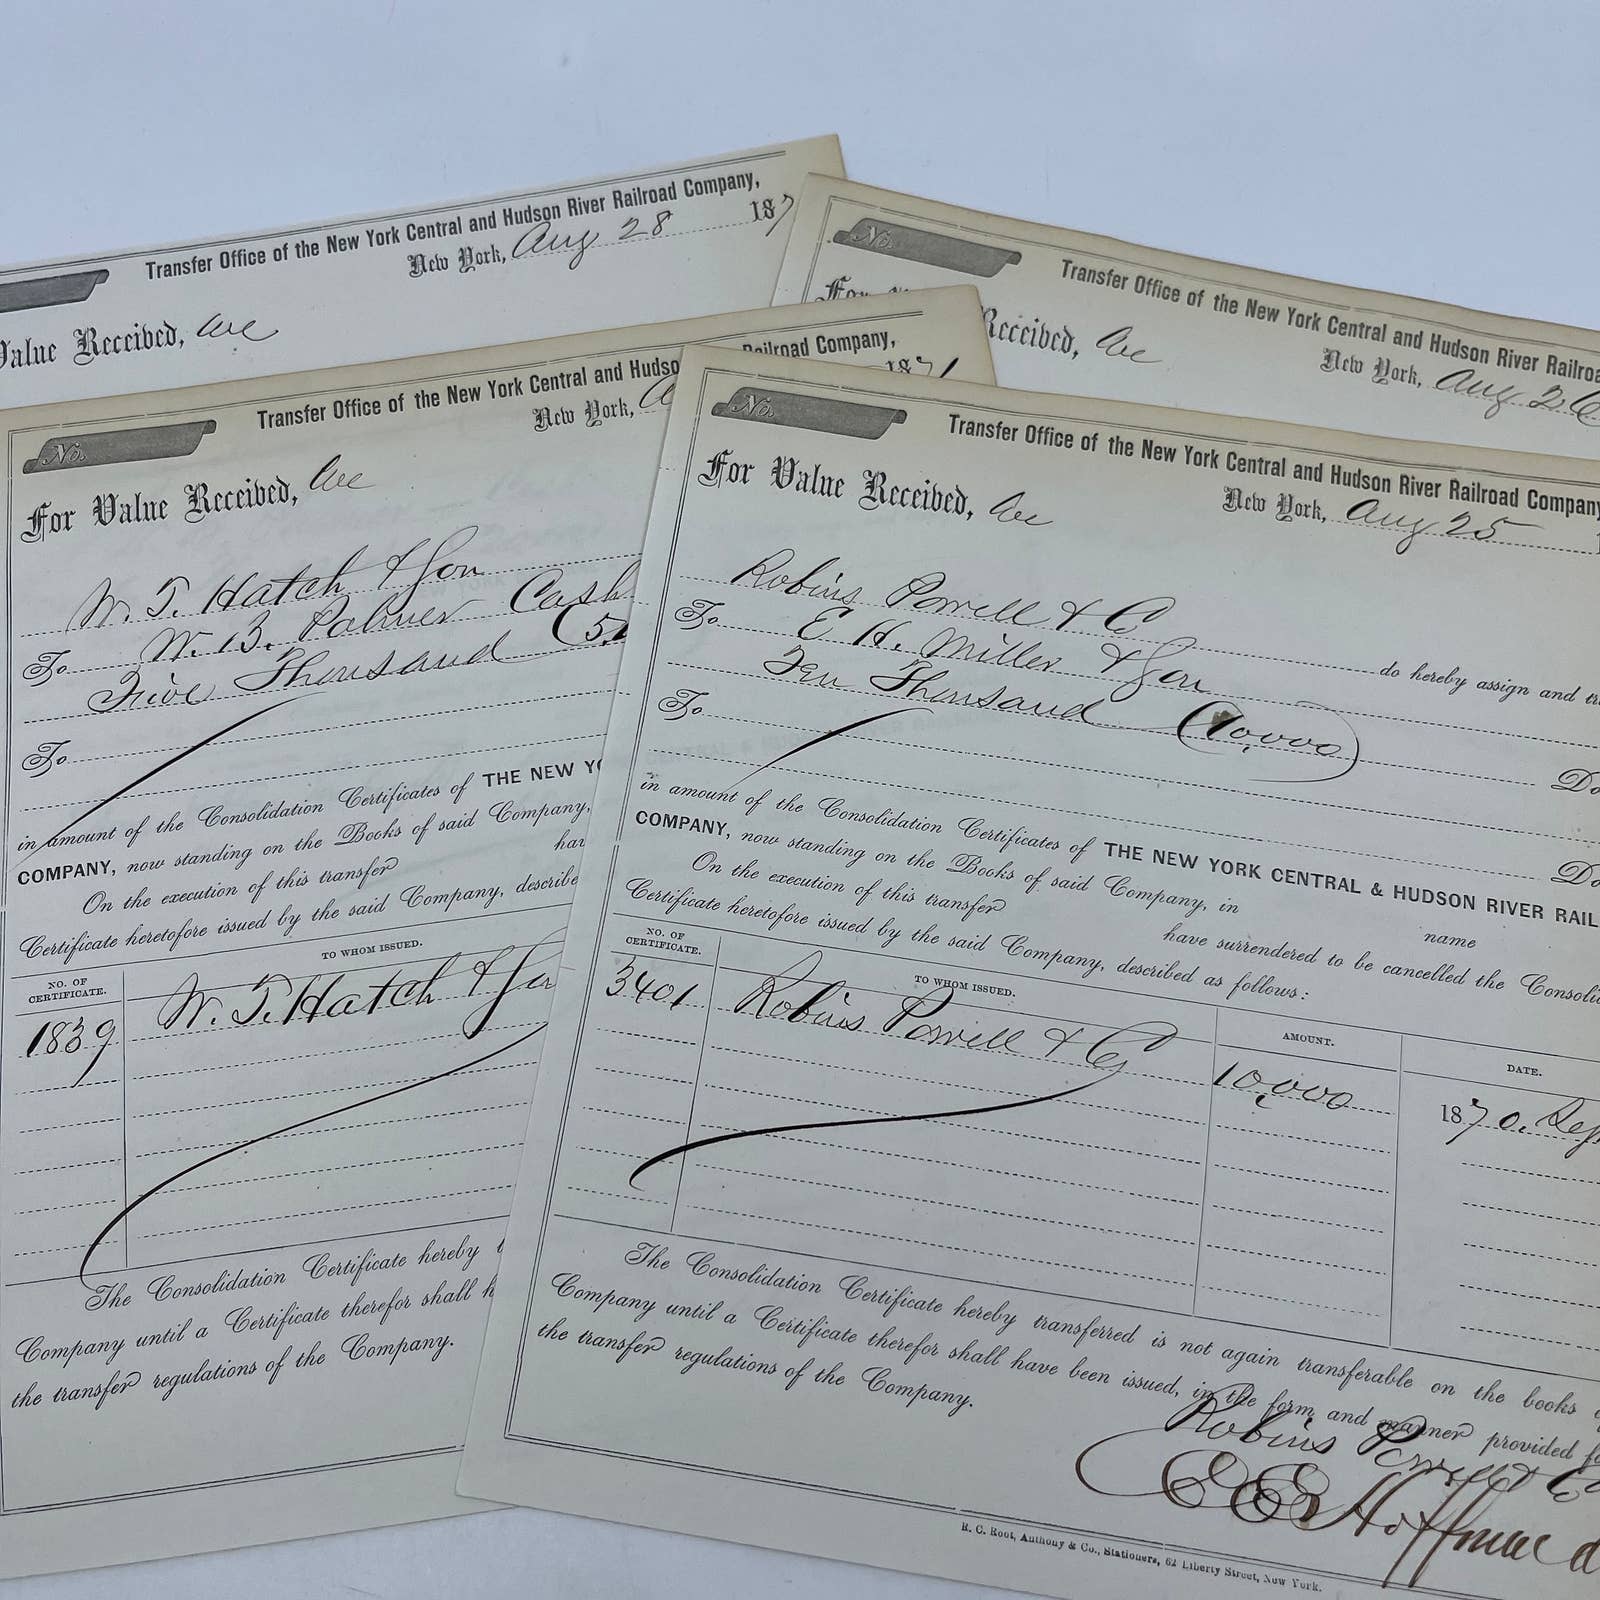 Transfer Office of the New York Central and Hudson River Railroad Company,
New York, Aug 28 187
Value Received, We
No.
Transfer Office of the New York Central and Hudson River Railroa
New York, Aug 26
Received, We
No.
Transfer Office of the New York Central and Hudso Railroad Company,
New York, A 1871
For Value Received, We
W. T. Hatch & Son
To W. B. Palmer Cash
Five Thousand (5.
To
in amount of the Consolidation Certificates of THE NEW YO
COMPANY, now standing on the Books of said Company,
On the execution of this transfer hav
Certificate heretofore issued by the said Company, describe
NO. OF CERTIFICATE. TO WHOM ISSUED.
1839 W. T. Hatch & Son
The Consolidation Certificate hereby t
Company until a Certificate therefor shall h
the transfer regulations of the Company.
No.
Transfer Office of the New York Central and Hudson River Railroad Company
New York, Aug 25 1
For Value Received, We
Robins Powell & Co
do hereby assign and tr
To E. H. Miller & Son
Ten Thousand (10,000) Do
To
Do
in amount of the Consolidation Certificates of THE NEW YORK CENTRAL & HUDSON RIVER RAIL
COMPANY, now standing on the Books of said Company, in name
On the execution of this transfer have surrendered to be cancelled the Consoli
Certificate heretofore issued by the said Company, described as follows:
NO. OF CERTIFICATE. TO WHOM ISSUED. AMOUNT. DATE.
3401 Robins Powell & Co 10,000 1870. Sep
The Consolidation Certificate hereby transferred is not again transferable on the books o
Company until a Certificate therefor shall have been issued, in the form and manner provided fo
the transfer regulations of the Company.
Robins Powell & Co
R. C. Root, Anthony & Co., Stationers, 62 Liberty Street, New York.